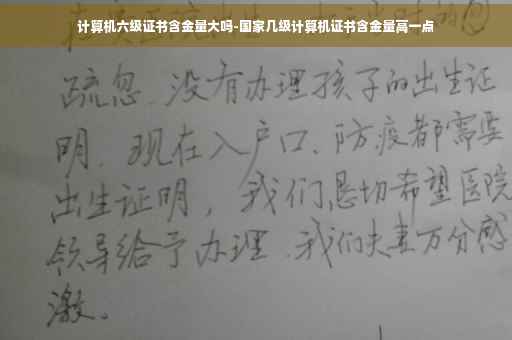 计算机六级证书含金量大吗-国家几级计算机证书含金量高一点
疏忽、没有办理孩子的出生证
明、现在入户口、防疫都需要
出生证明，我们恳切希望医院
领导给予办理、我们夫妻万分感
激。